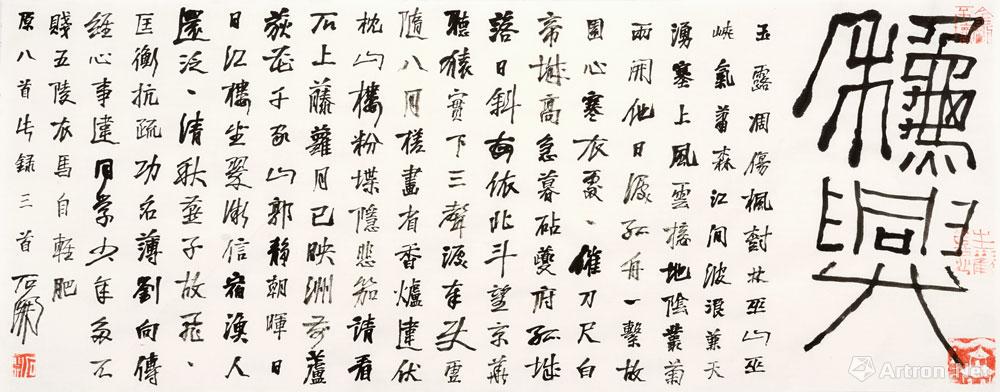 龝興
玉露凋傷楓樹林巫山巫
峽氣蕭森江間波浪兼天
湧塞上風雲接地陰叢菊
兩開他日淚孤舟一繫故
園心寒衣處、催刀尺白
帝城高急暮砧夔府孤城
落日斜每依北斗望京華
聽猿實下三聲淚奉使虛
隨八月槎畫省香爐違伏
枕山樓粉堞隱悲笳請看
石上藤蘿月已映洲前蘆
荻花千家山郭靜朝暉日
日江樓坐翠微信宿漁人
還泛、清秋燕子故飛、
匡衡抗疏功名薄劉向傳
經心事違同學少年多不
賤五陵衣馬自輕肥
原八首此錄三首 石開
Artron.Net